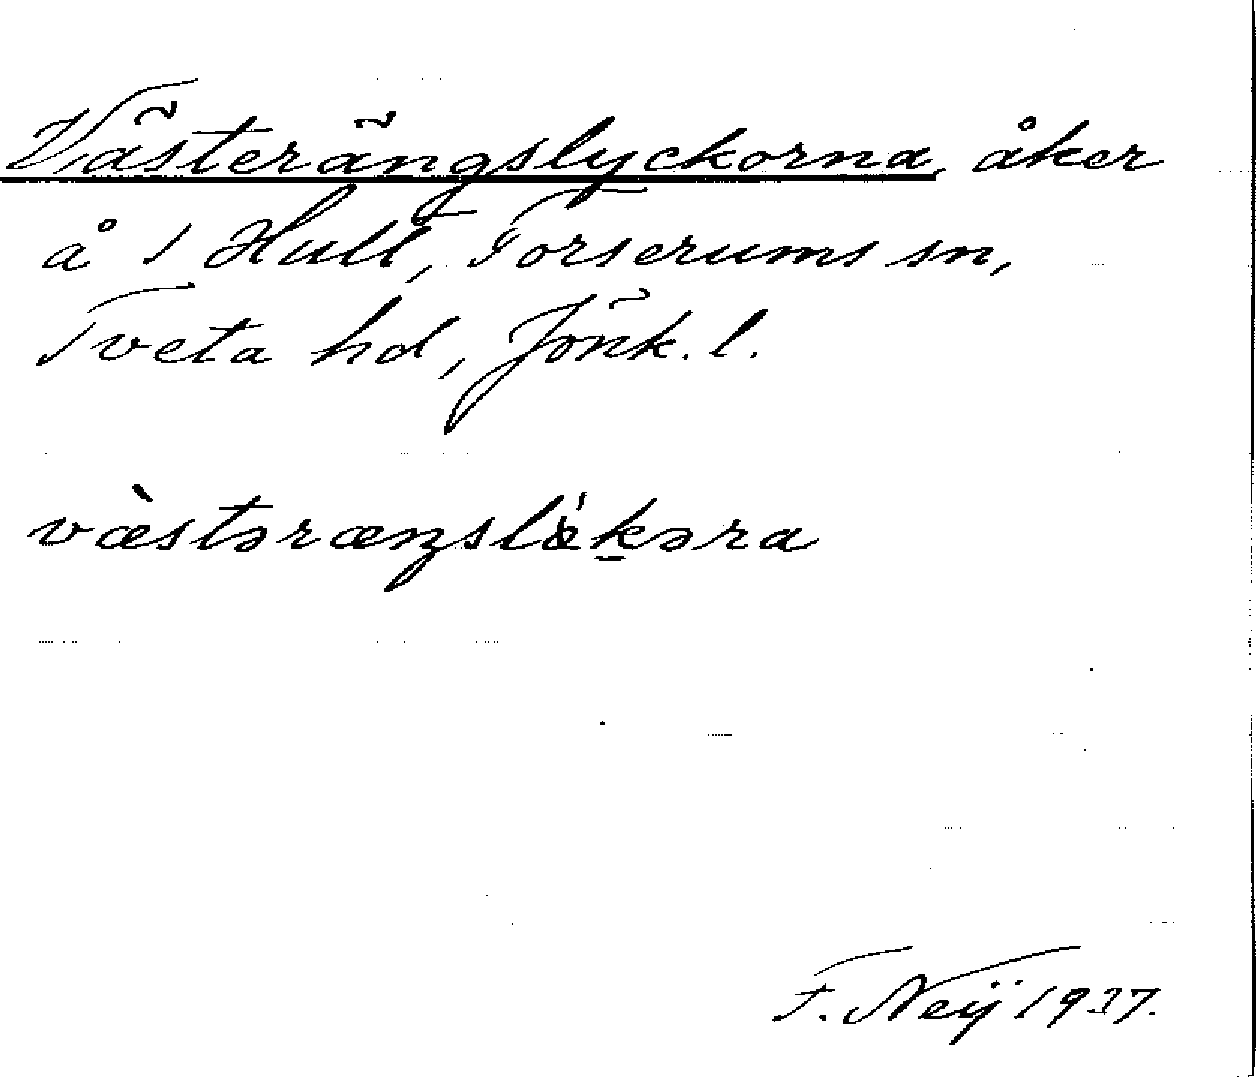 Västerängslyckorna, åker
å 1 Hult, Forserums sn,
Tveta hd, Jönk. l.
væ̀stəræŋslø̀kəra
F. Neij 1937.